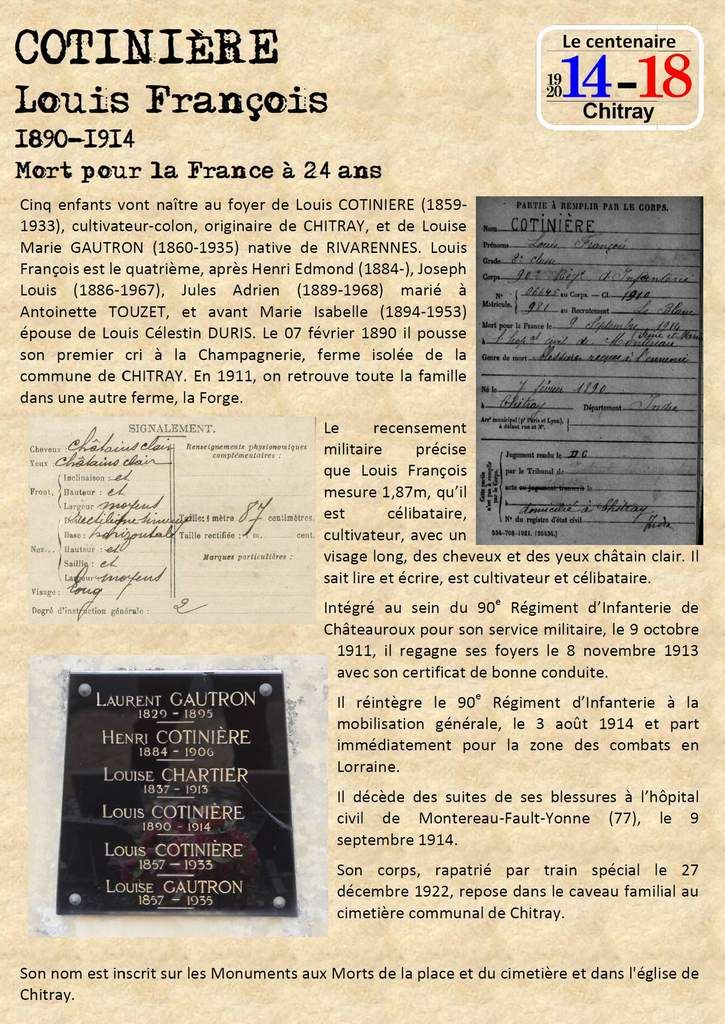 COTINIÈRE
Louis François
1890-1914
Mort pour la France à 24 ans
Le centenaire
19 20 14-18
Chitray
Cinq enfants vont naître au foyer de Louis COTINIERE (1859-
1933), cultivateur-colon, originaire de CHITRAY, et de Louise
Marie GAUTRON (1860-1935) native de RIVARENNES. Louis
François est le quatrième, après Henri Edmond (1884-), Joseph
Louis (1886-1967), Jules Adrien (1889-1968) marié à
Antoinette TOUZET, et avant Marie Isabelle (1894-1953)
épouse de Louis Célestin DURIS. Le 07 février 1890 il pousse
son premier cri à la Champagnerie, ferme isolée de la
commune de CHITRAY. En 1911, on retrouve toute la famille
dans une autre ferme, la Forge.
PARTIE À REMPLIR PAR LE CORPS.
Nom COTINIÈRE
Prénoms Louis François
Grade 2e classe
Corps 90e Régt d'Infanterie
N° 06645 au Corps. — Cl. 1910
Matricule. 981 au Recrutement Le Blanc
Mort pour la France le 9 Septembre 1914
à l'hôpital civil de Montereau
Genre de mort Blessures reçues à l'ennemi
Né le 7 février 1890
à Chitray Département Indre
Arrt municipal (pr Paris et Lyon),
à défaut rue et N°.
Jugement rendu le
par le Tribunal de
acte ou jugement transcrit le
domicilié à Chitray
Indre
N° du registre d'état civil
534-708-1921. [26434.]
SIGNALEMENT.
Cheveux châtains clair
Yeux châtains clair
Renseignements physionomiques
complémentaires :
Inclinaison : et
Front, Hauteur : et
Largeur moyens
rectiligne
Base : horizontale
Nez... Hauteur : et
Saillie : et
Largeur moyens
Visage : long
Taille : 1 mètre 87 centimètres.
Taille rectifiée : 1 m. cent.
Marques particulières :
Degré d'instruction générale : 2
Le recensement
militaire précise
que Louis François
mesure 1,87m, qu'il
est célibataire,
cultivateur, avec un
visage long, des cheveux et des yeux châtain clair. Il
sait lire et écrire, est cultivateur et célibataire.
Intégré au sein du 90e Régiment d'Infanterie de
Châteauroux pour son service militaire, le 9 octobre
1911, il regagne ses foyers le 8 novembre 1913
avec son certificat de bonne conduite.
Il réintègre le 90e Régiment d'Infanterie à la
mobilisation générale, le 3 août 1914 et part
immédiatement pour la zone des combats en
Lorraine.
Il décède des suites de ses blessures à l'hôpital
civil de Montereau-Fault-Yonne (77), le 9
septembre 1914.
Son corps, rapatrié par train spécial le 27
décembre 1922, repose dans le caveau familial au
cimetière communal de Chitray.
LAURENT GAUTRON
1829 - 1895
HENRI COTINIÈRE
1884 - 1906
LOUISE CHARTIER
1837 - 1913
LOUIS COTINIÈRE
1890 - 1914
LOUIS COTINIÈRE
1857 - 1933
LOUISE GAUTRON
1857 - 1935
Son nom est inscrit sur les Monuments aux Morts de la place et du cimetière et dans l'église de
Chitray.